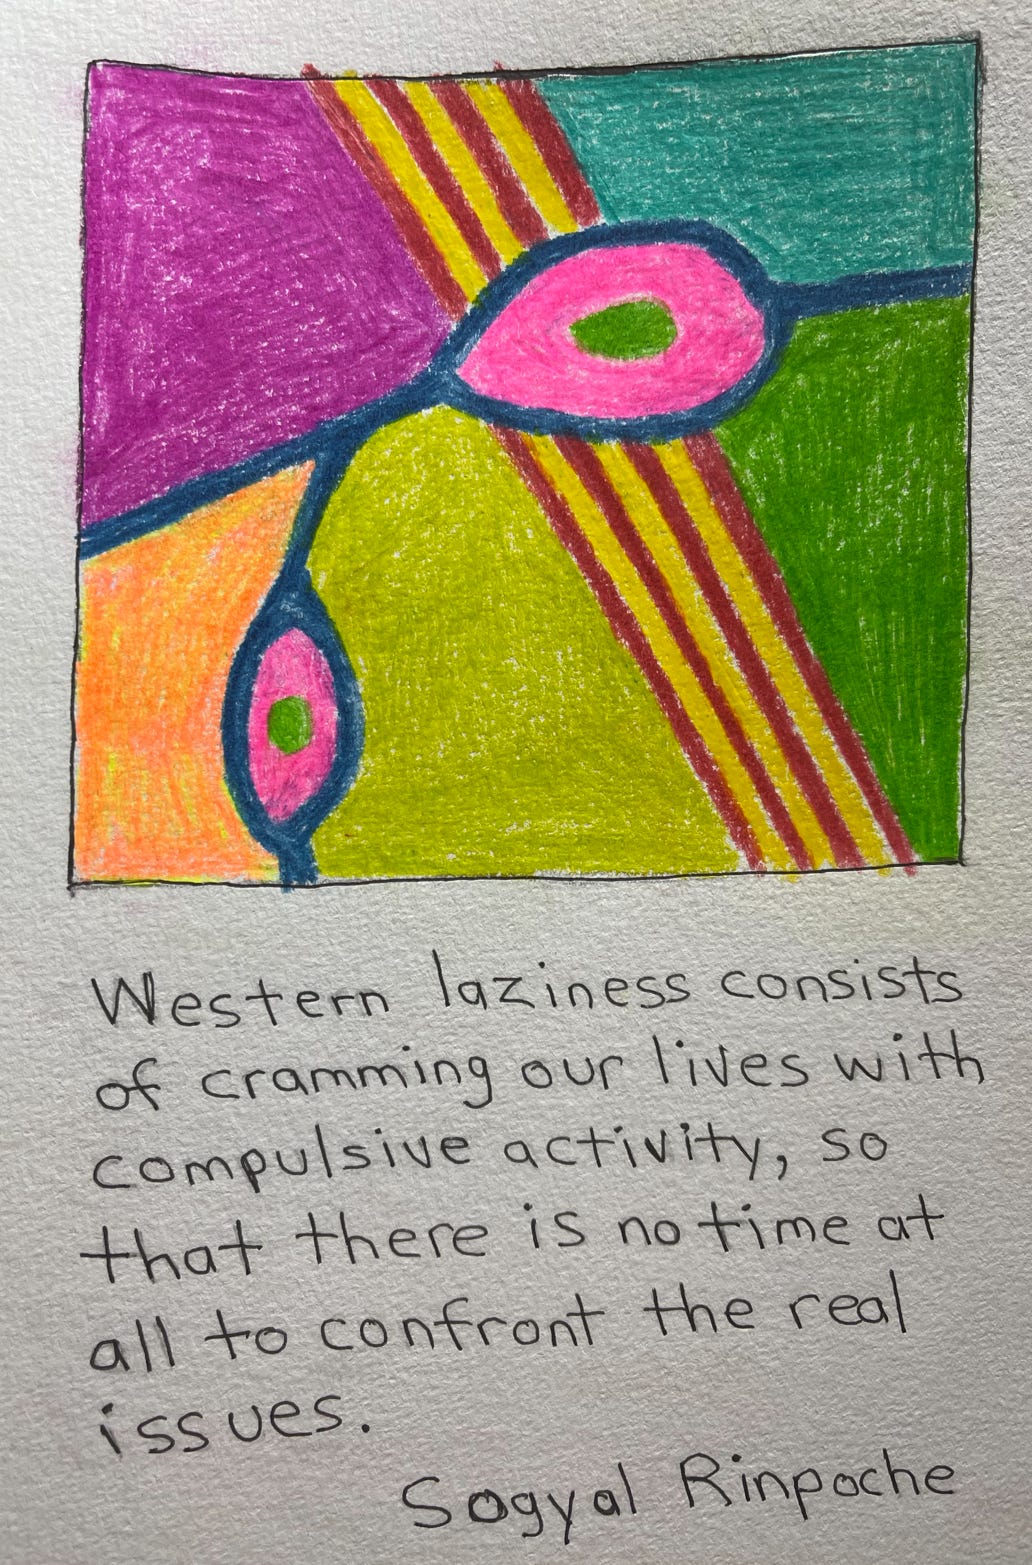 Western laziness consists
of cramming our lives with
compulsive activity, so
that there is no time at
all to confront the real
issues.
Sogyal Rinpoche